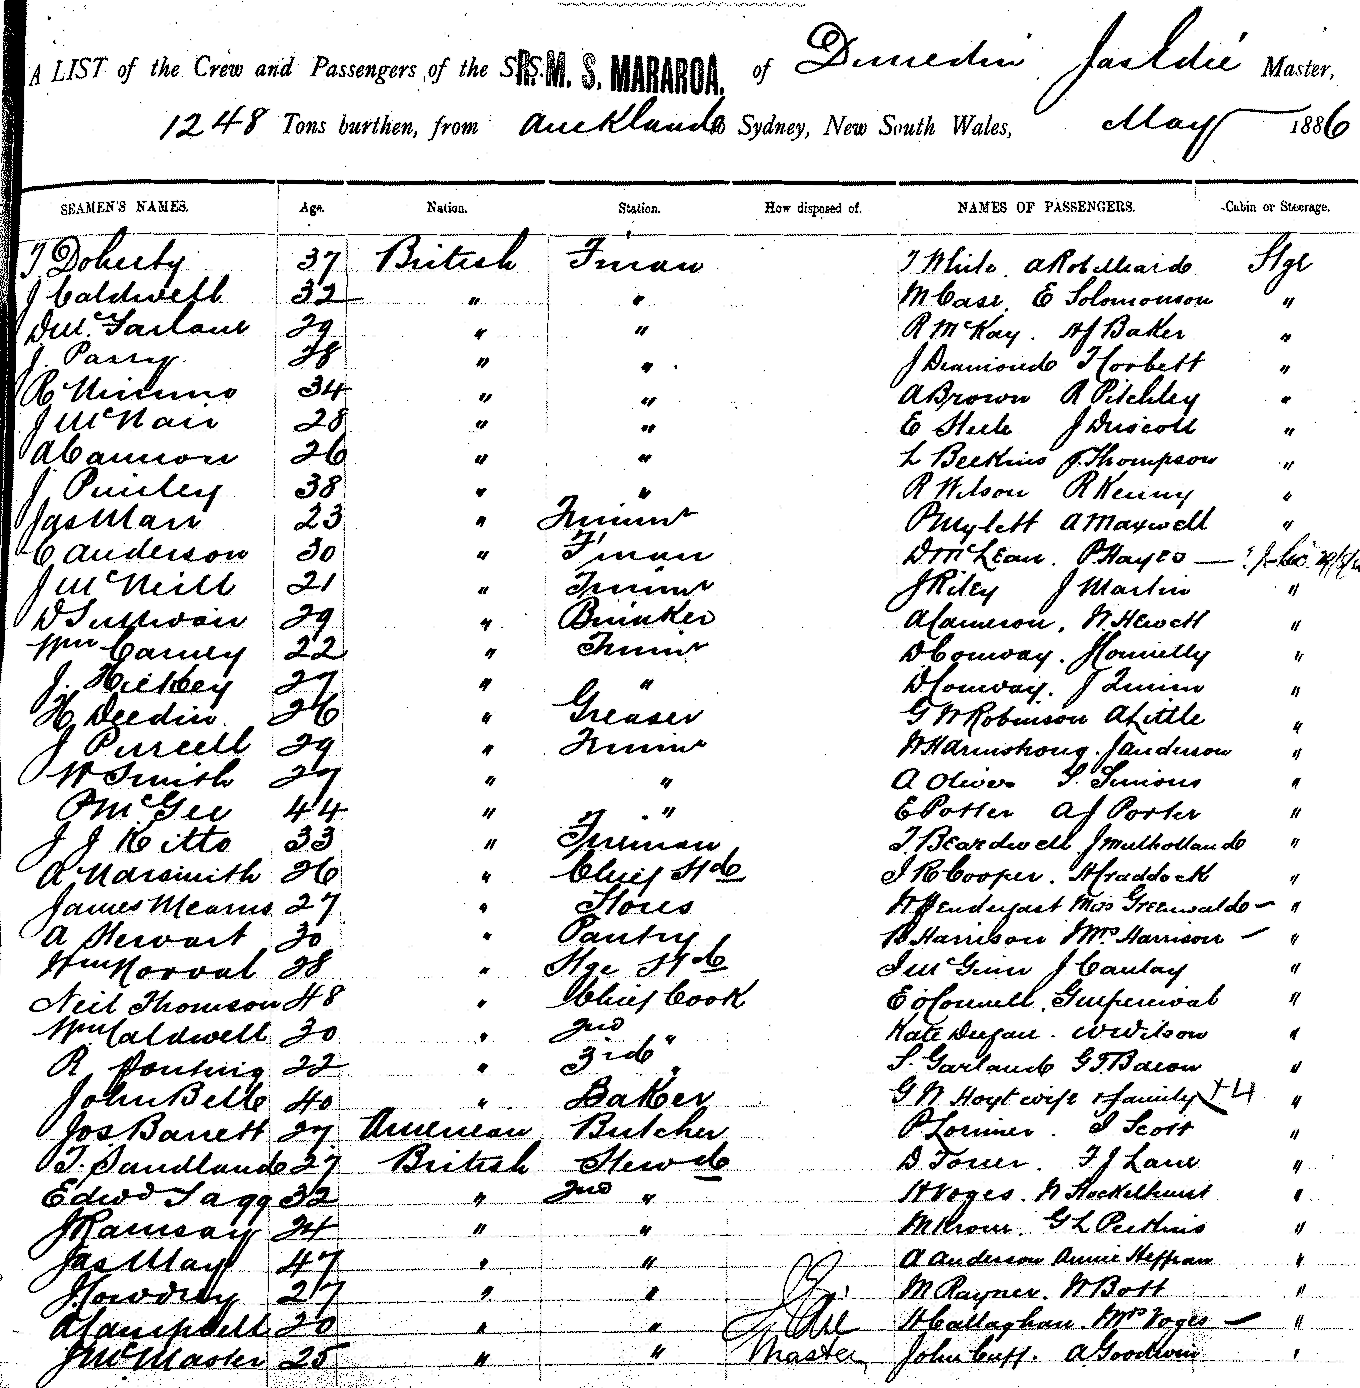 A LIST of the Crew and Passengers of the S.S. R. M. S. MARAROA. of Dunedin Jas Edie Master,
1248 Tons burthen, from Auckland to Sydney, New South Wales, May 1886
SEAMEN'S NAMES. Age. Nation. Station. How disposed of. NAMES OF PASSENGERS. Cabin or Steerage.
T Doherty 37 British F'man T White A Robilliard Stge
J Caldwell 32 " " M Case E Solomonson "
D McFarlane 29 " " R McKay. H J Baker "
J Parry 28 " " J Diamond T Corbett "
R Nimmo 34 " " A Brown R Pitchley "
J McNair 28 " " E Steele J Driscoll "
A Cannon 26 " " L Beekins J Thompson "
J Pinsley 38 " " R Wilson R Kenny "
Jas Marr 23 " Trimmr P Mylett A Maxwell "
C Anderson 30 " F'man D McLean. P Hayes —
J McNeill 21 " Trimmr J Riley J Martin "
D Sullivan 29 " Bunker A Cameron. W Hewett "
Wm Carney 22 " Trimmr D Conway. J Connelly "
J. Hickey 27 " " D Conway. J Quinn "
H Deedin 26 " Greaser G W Robinson A Little "
J Purcell 29 " Trimmr W H Armstrong. J Anderson "
W Smith 27 " " A Oliver S. Simons "
P McGee 44 " " E Potter A J Porter "
J J Kitto 33 " Fireman T. Beardwell J Mulholland "
A Narsmith 26 " Chief Std J R Cooper. H Craddock "
James Mearns 27 " Stores W Hendergast Miss Greenwald — "
A Stewart 30 " Pantry B Harrison Mrs Harrison — "
Wm Norval 28 " Stge Std J McGinn J Caulay "
Neil Thomson 48 " Chief Cook E O'Connell. G Mpercival "
Wm Caldwell 30 " 2nd " Kate Deegan. W Wilson "
R Ponting 22 " 3rd " S. Garland G F Bacon "
John Bell 40 " Baker G W Hoyt wife & family +4 "
Jos Barrett 27 American Butcher P Lorimer. J Scott "
T. Sandland 27 British Stewd D Torrer. T J Lane "
Edwd Tagg 32 " 2nd " H Voges. W Stockelhurst "
J Ramsay 24 " " M Krom. G L Perkins "
Jas May 47 " " A Anderson Annie Heffran "
J Cowdrey 27 " " M Rayner. W Bott "
A Campbell 20 " " J Edie H Callaghan. Mrs Voges — "
J McMaster 25 " " Master John Cuff. A Goodwin "